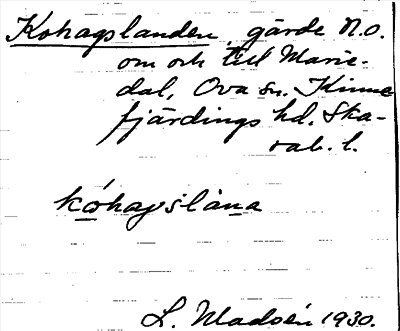 Kohagslanden, gärde N.O.
om och till Marie-
dal, Ova sn. Kinne
fjärdings hd. Ska-
rab. l.
kóhagslàna
L. Madsén 1930.